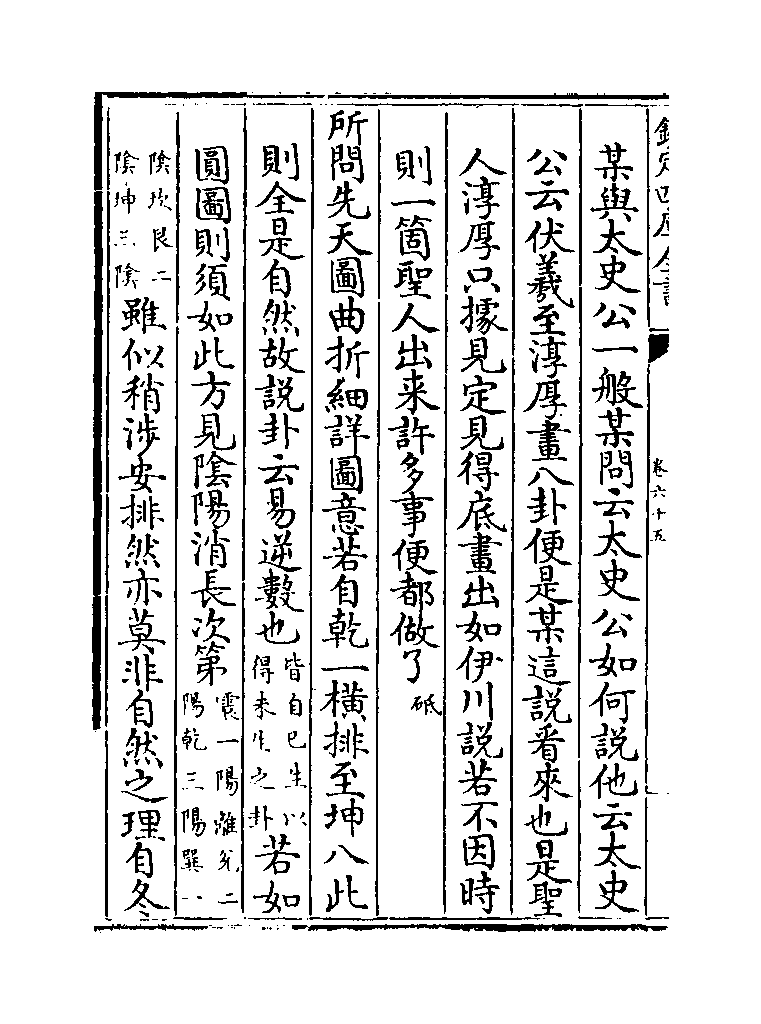 欽定四庫全書
卷六十五
某與太史公一般某問云太史公如何說他云太史
公云伏羲至淳厚畫八卦便是某這説看來也是聖
人淳厚只據見定見得底畫出如伊川説若不因時
則一箇聖人出来許多事便都做了砥
所問先天圖曲折細詳圖意若自乾一横排至坤八此
則全是自然故説卦云易逆數也皆自已生以得未生之卦若如
圓圖則須如此方見陰陽消長次第震一陽離兌二陽乾三陽巽一
陰坎艮二陰坤三陰雖似稍涉安排然亦莫非自然之理自冬